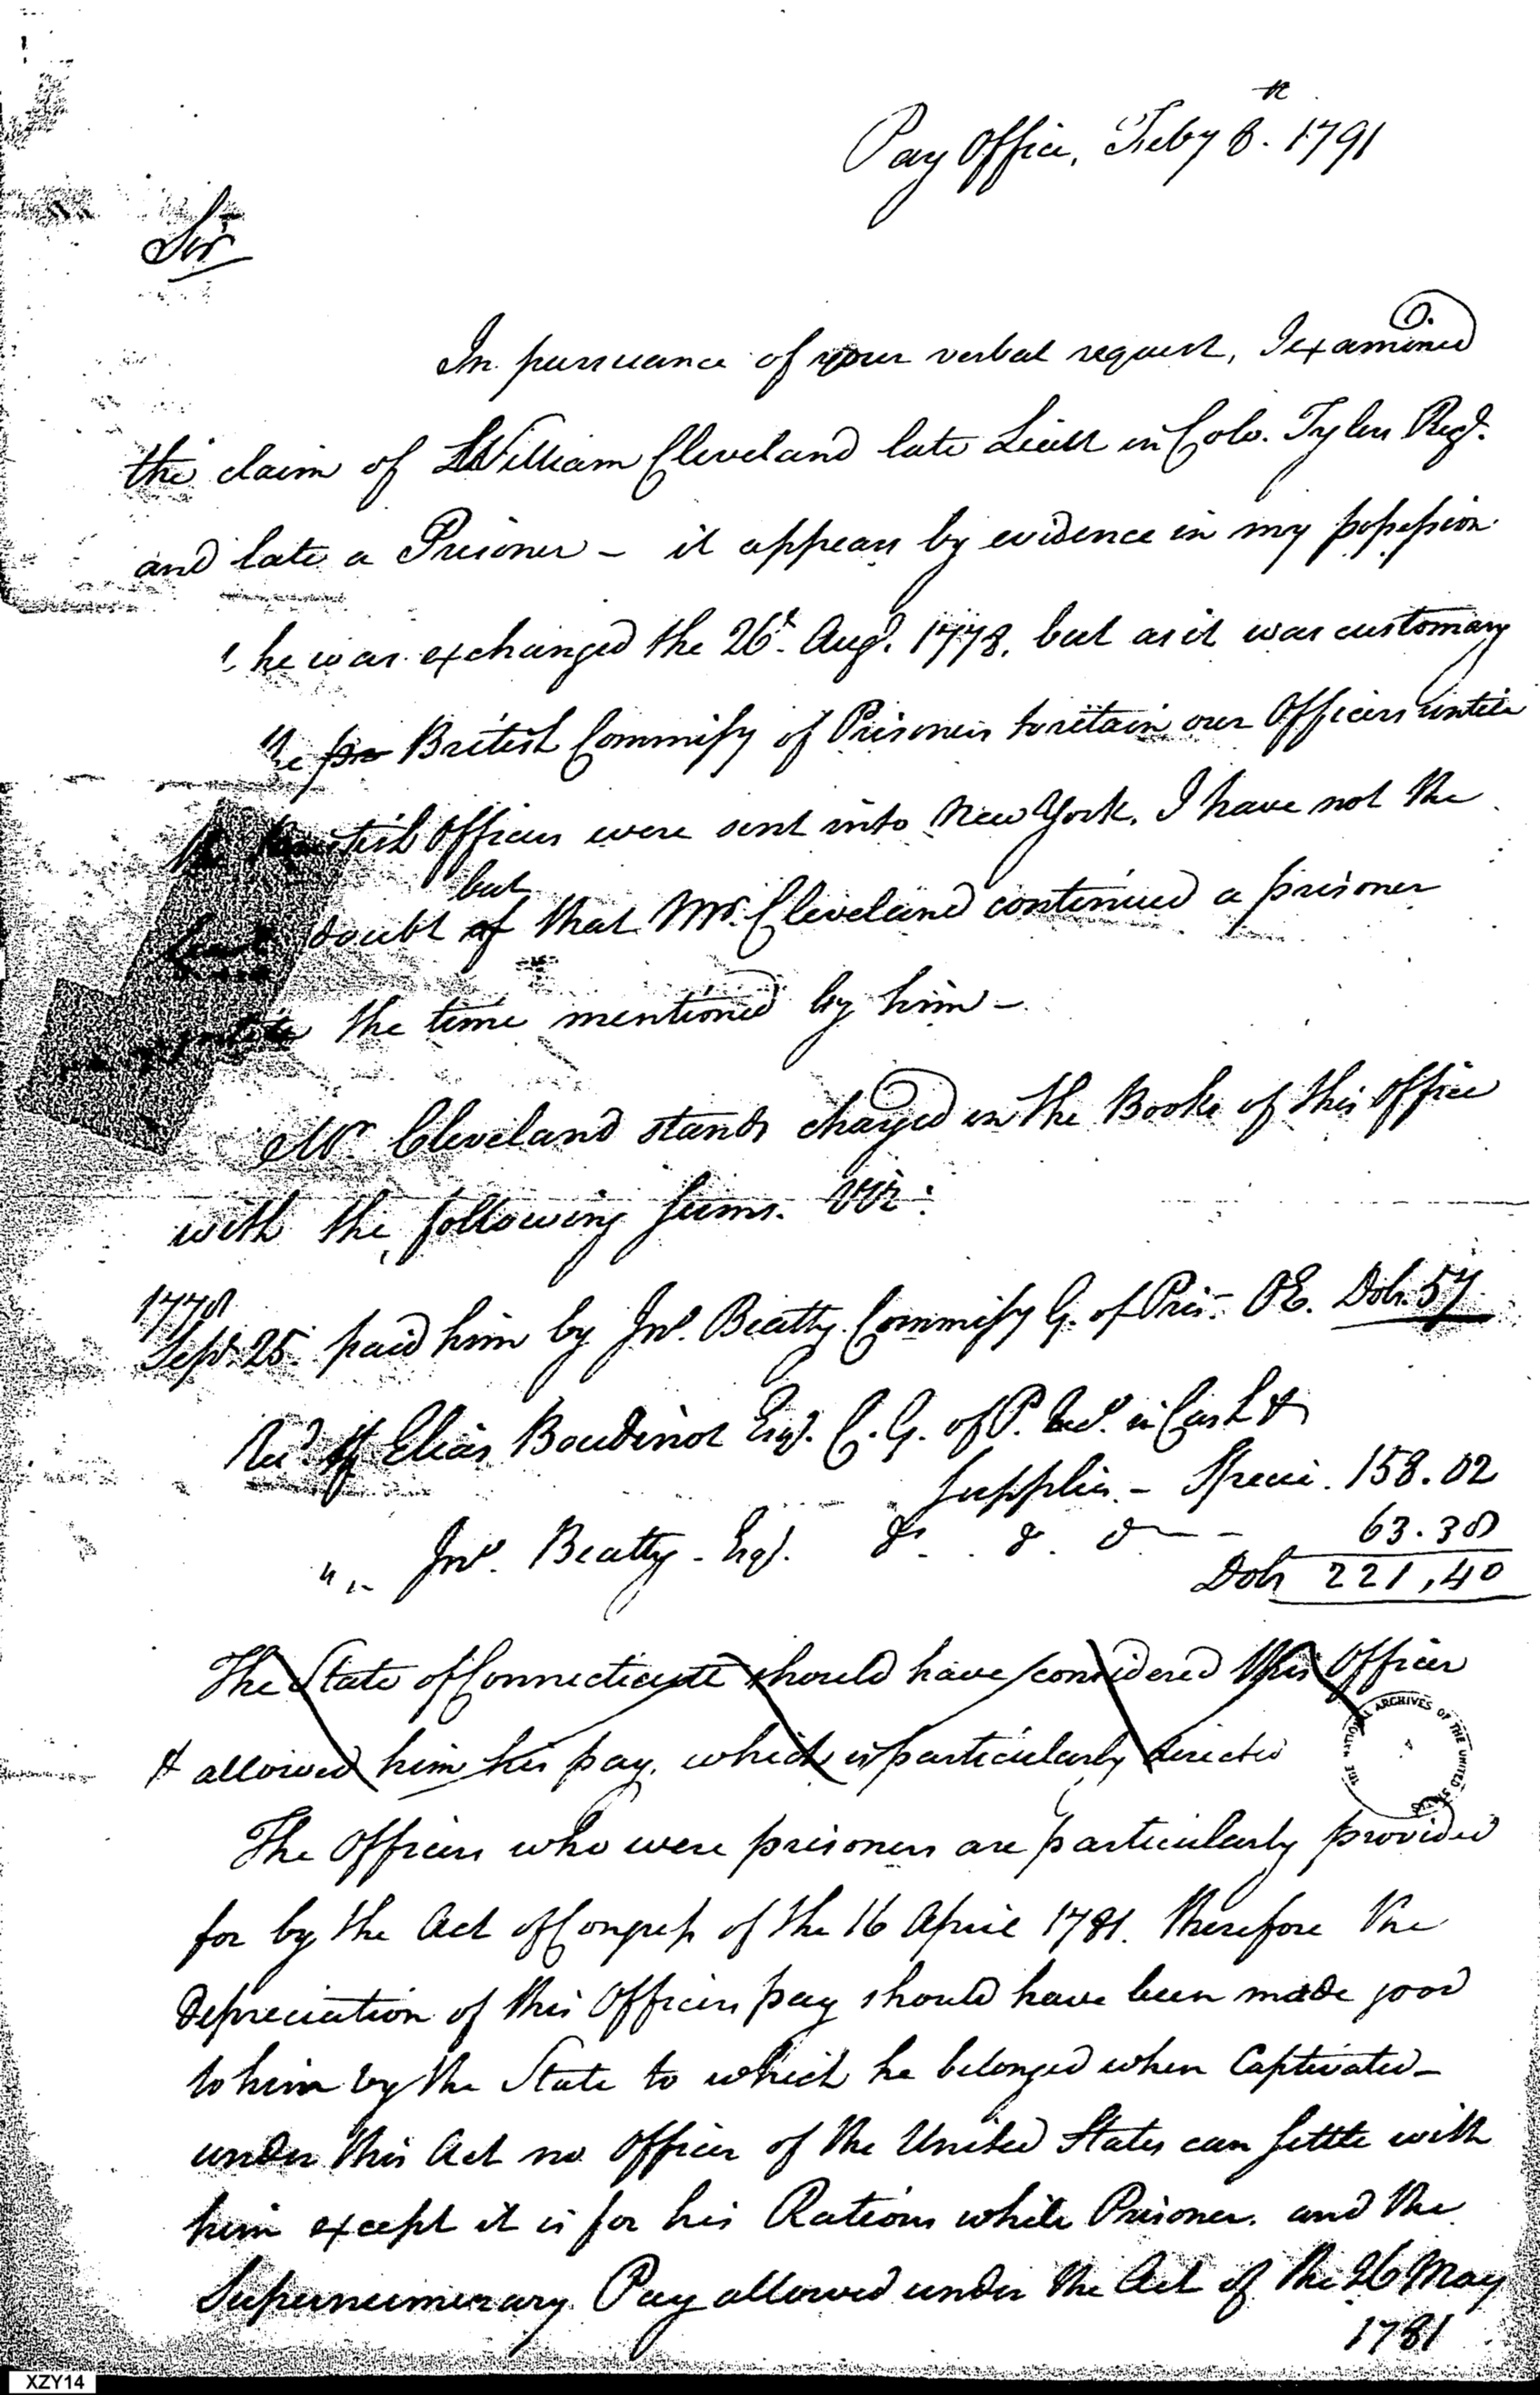 Pay Office, Feby 8.th 1791
Sir
In pursuance of your verbal request, I examined
the claim of William Cleveland late Lieut in Colo. Tylers Regt.
and late a Prisoner – it appears by evidence in my possession
he was exchanged the 26t. Augt. 1778, but as it was customary
British Commissy of Prisoners to retain our Officers until
the British Officers were sent into New York, I have not the
but
least doubt of that Mr. Cleveland continued a prisoner
until the time mentioned by him –
Mr. Cleveland stands charged in the Books of this Office
with the following Sums. Viz:
1778
Sept. 25. paid him by Jno. Beatty Commissy G. of Pris. OE. Dols. 57
Recd. of Elias Boudinot Esqr. C. G. of P. in Cash &
Supplies – Specie. 158.02
" Jno. Beatty – Esqr. do. do. do – – 63.38
Dols 221,40
The State of Connecticutt should have considered this Officer
& allowed him his pay, which is particularly directed
The Officers who were prisoners are particularly provided
for by the Act of Congress of the 16 April 1781. therefore the
Depreciation of this Officers pay should have been made good
to him by the State to which he belonged when Captivated –
under this Act no Officer of the United States can settle with
him except it is for his Rations while Prisoner. and the
Supernumerary Pay allowed under the Act of the 26 May
1781
THE NATIONAL ARCHIVES OF THE UNITED STATES
XZY14